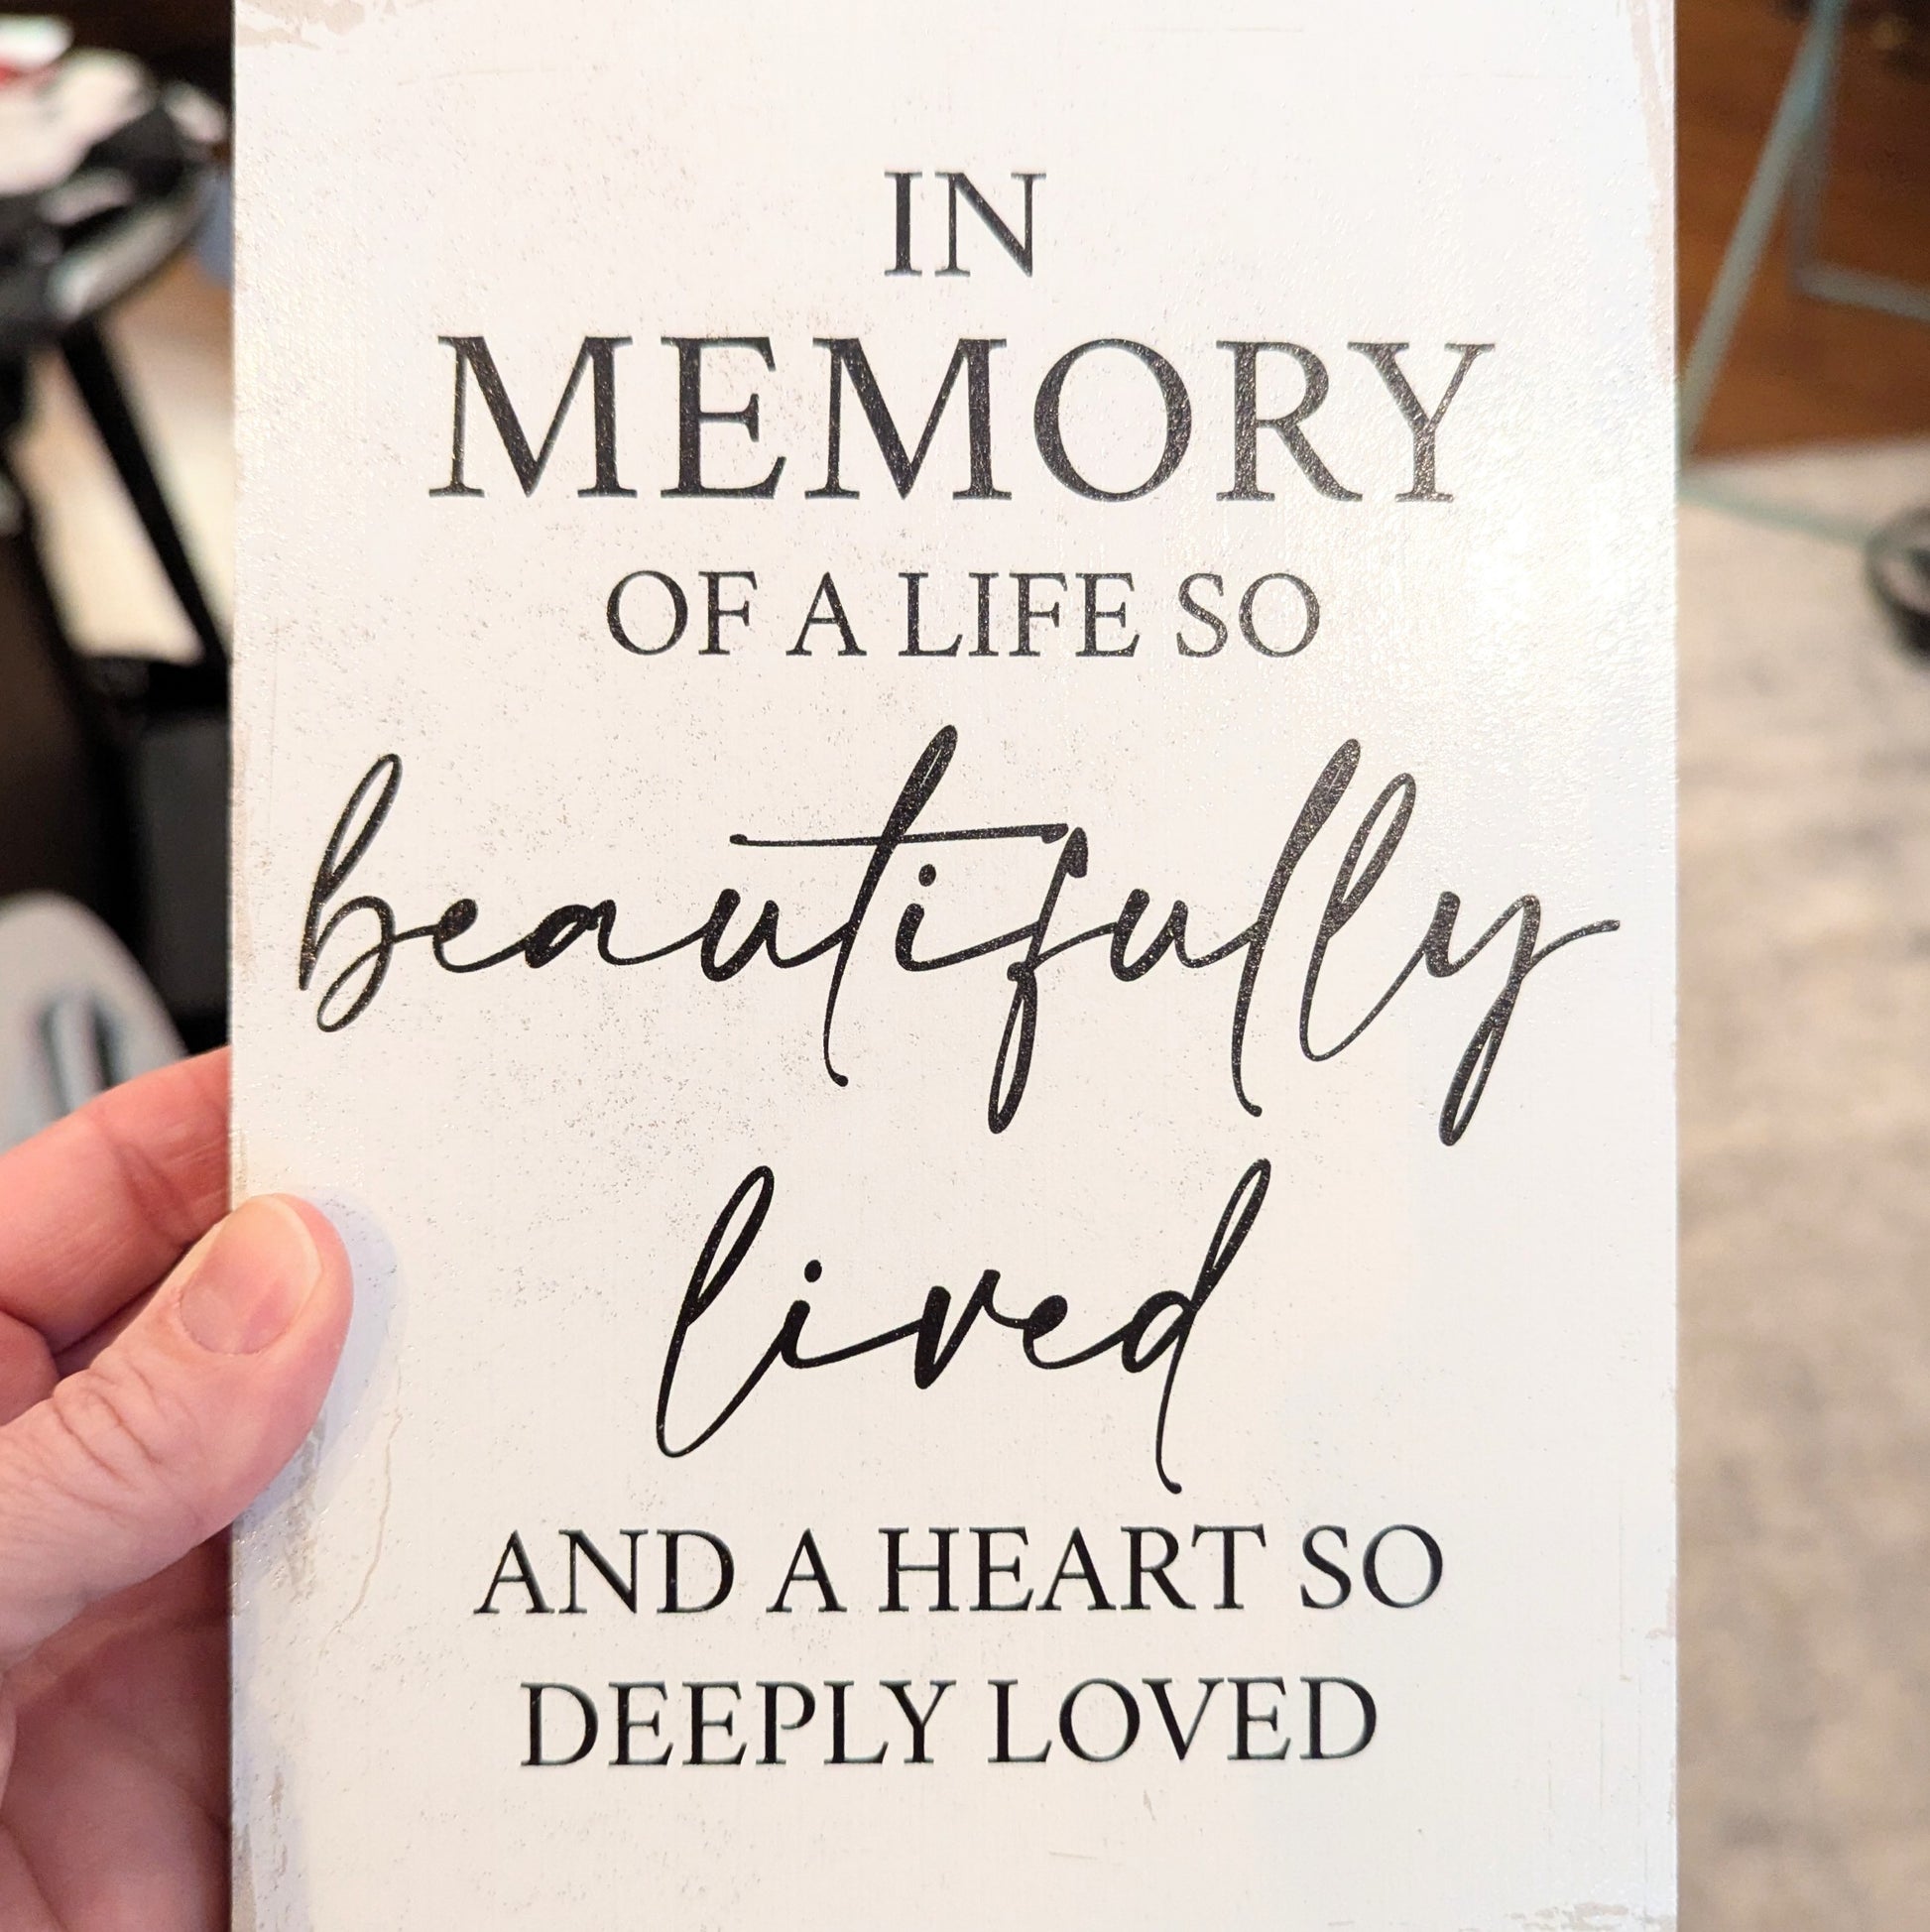 IN
MEMORY
OF A LIFE SO
beautifully
lived
AND A HEART SO
DEEPLY LOVED